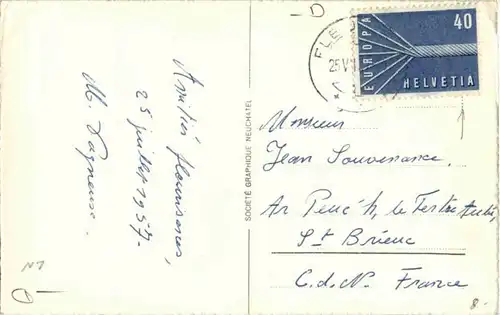 Amitiés fleurisanes,
25 juillet 1957.
M. Vagneux.
SOCIÉTÉ GRAPHIQUE NEUCHATEL
FLE
25 V
EUROPA
40
HELVETIA
Monsieur
Jean Souvenance.
Ar Peuc'h, le Tertre
St Brieuc
C.d.N. France
8.-